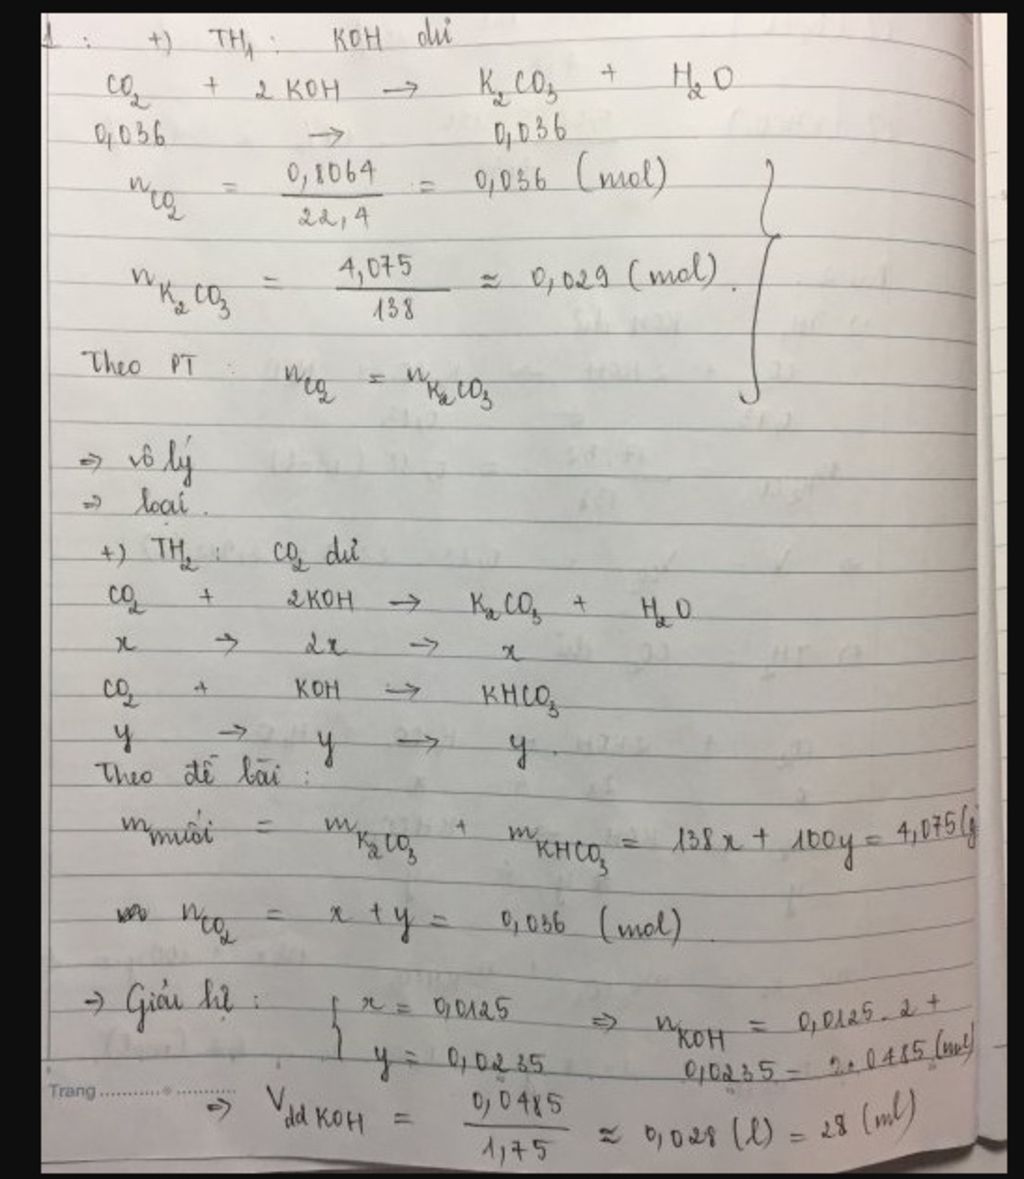 1 : +) TH₁ : KOH dư
CO₂ + 2 KOH → K₂CO₃ + H₂O
0,036 → 0,036
n_CO₂ = 0,8064 / 22,4 = 0,036 (mol)
n_K₂CO₃ = 4,075 / 138 ≈ 0,029 (mol).
Theo PT : n_CO₂ = n_K₂CO₃
⇒ vô lý
⇒ loại.
+) TH₂ : CO₂ dư
CO₂ + 2KOH → K₂CO₃ + H₂O
x → 2x → x
CO₂ + KOH → KHCO₃
y → y → y.
Theo đề bài :
m_muối = m_K₂CO₃ + m_KHCO₃ = 138x + 100y = 4,075 (g
n_CO₂ = x + y = 0,036 (mol).
→ Giải hệ : { x = 0,0125 ⇒ n_KOH = 0,0125. 2 +
y = 0,0235 0,0235 = 0,0485 (mol)
Trang
⇒ V_dd KOH = 0,0485 / 1,75 ≈ 0,028 (l) = 28 (ml)